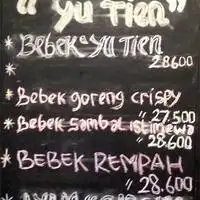 " Yu Tien "
* Bebek Yu Tien
28.600
*
* Bebek goreng crispy
" 27.500
* Bebek sambal istimewa
" 28.600
* BEBEK REMPAH
" 28.600
*